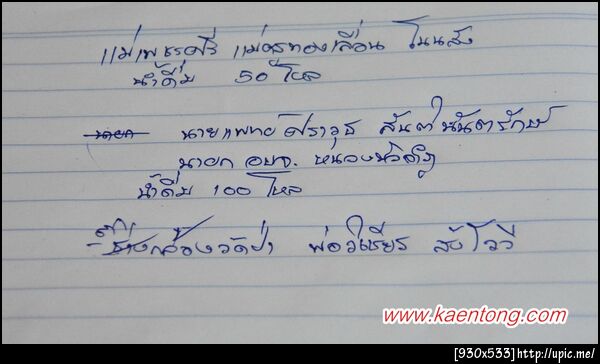 แม่เพชรศรี แม่ทองเลื่อน โนนสัง
น้ำดื่ม 50 โหล
นายก นายแพทย์ ศราวุธ สันตินันตรักษ์
นายก อบจ. หนองบัวลำภู
น้ำดื่ม 100 โหล
วัดป่า พ่อวิเชียร
www.kaentong.com
[930x533]http://upic.me/